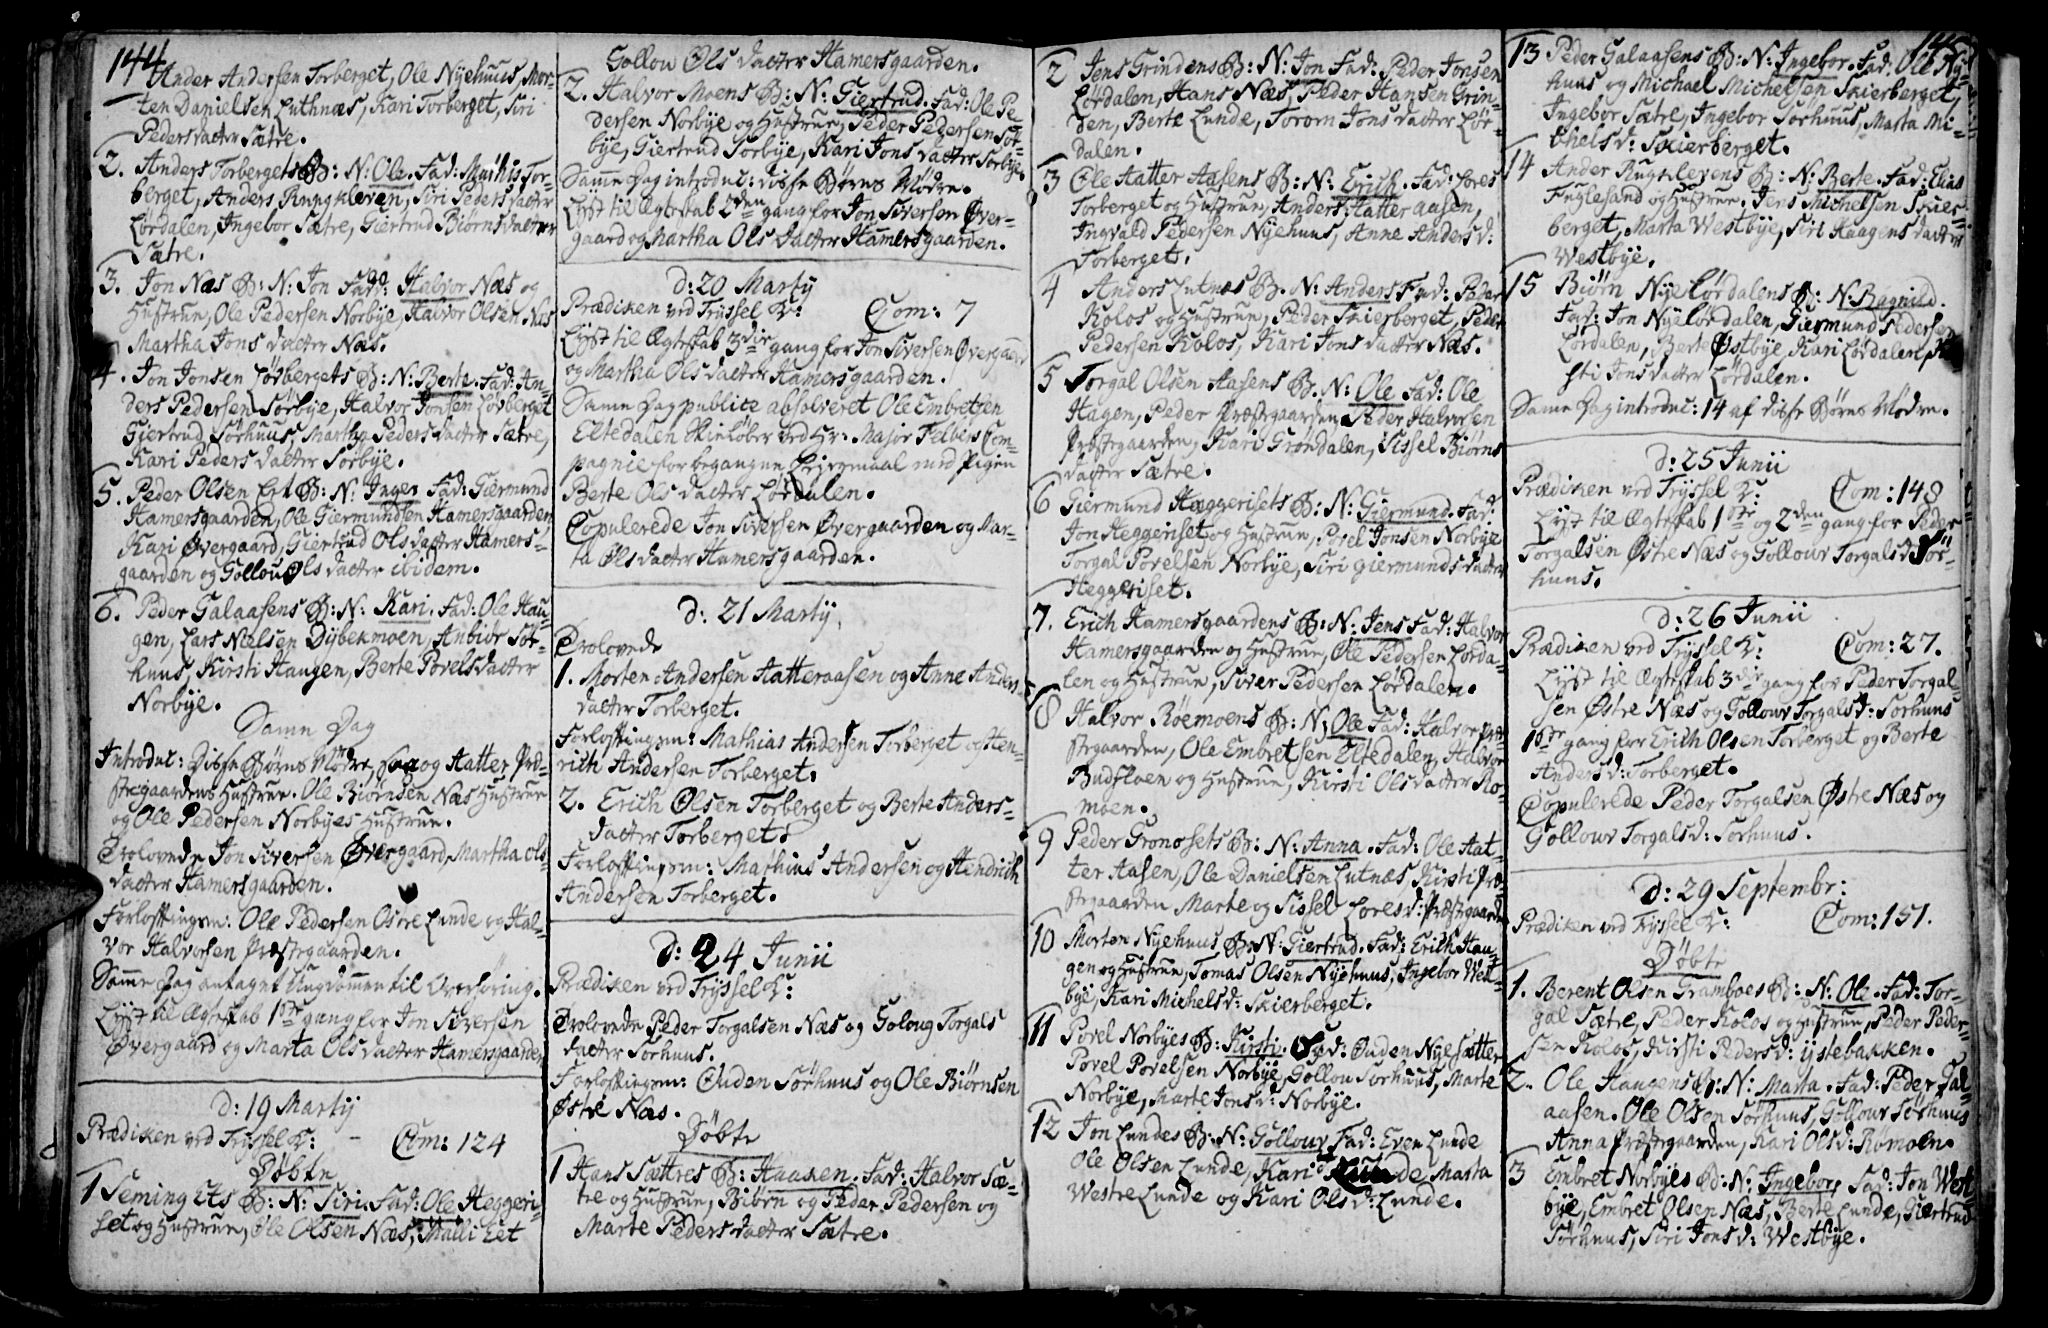 144
Ander Andersen Torberget, Ole Nyehuus, Mor-
ten Danielsen Luthnæs, Kari Torberget, Siri
Pedersdatter Sætre.
2. Anders Torbergets B: N: Ole. Fad: Mathis Tor-
berget, Anders Rungkleven, Siri Pedersdatter
Lørdalen, Ingebor Sætre, Giertrud Biørnsdatter
Sætre.
3. Jon Næs B: N: Jon Fadd: Halvor Næs og
Hustrue, Ole Pedersen Norbye, Halvor Olsen Næs
Martha Jonsdatter Næs.
4. Jon Jonsen Løvbergets B: N: Berte. Fad: An-
ders Pedersen Sørbye, Halvor Jonsen Løvberget
Giertrud Sørhuus, Martha Pedersdatter Sætre,
Kari Pedersdatter Sørbye.
5. Peder Olsen Eet B: N: Inger Fad: Giermund
Hamersgaarden, Ole Giermundsen Hamersgaarden
Kari Øvergaard, Giertrud Olsdatter Hamers-
gaarden og Gollou Olsdatter ibidem.
6. Peder Galaasens B: N: Kari. Fad: Ole Hau-
gen, Lars Nelsen Dybekmoen, Anbiør Sør-
huus, Kirsti Haugen, Berte Povelsdatter
Norbye.
Samme Dag
Introduc: disse Børns Mødre, saa og Hatter Præ-
stegaardens Hustrue. Ole Biørnsen Næs Hustrue
og Ole Pedersen Norbyes Hustrue.
Trolovede Jon Siversen Øvergaard, Martha Ols-
datter Hamersgaarden.
Forloftingsm: Ole Pedersen Østre Lunde og Hal-
vor Halvorsen Præstegaarden.
Samme Dag antaget Ungdommen til Overhøring.
Lyst til Ægteskab 1ste gang for Jon Siversen
Øvergaard og Marta Olsdatter Hamersgaarden
d: 19 Martij
Prædiken ved Tryssel K: - Com: 124
Døbte
1 Seming Ets B: N: Siri. Fad: Ole Heggeri-
set og Hustrue, Ole Olsen Næs, Malli Eet
Gollou Olsdatter Hamersgaarden.
2. Halvor Moens B: N: Giertrud. Fad: Ole Pe-
dersen Norbye og Hustrue, Peder Pedersen Sør-
bye, Giertrud Sorbye, Kari Jonsdatter Sorbye.
Samme Dag introduc: disse Børns Mødre.
Lyst til Ægteskab 2den gang for Jon Siversen Øver-
gaard og Martha Olsdatter Hamersgaarden.
D: 20 Martij
Prædiken ved Tryssel K: Com: 7
Lyst til Ægteskab 3die gang for Jon Siversen Øvergaard
og Martha Olsdatter Hamersgaarden.
Samme Dag publice absolveret Ole Embretsen
Eltedalen Skieløber ved Hr: Major Felbers Com-
pagnie for begangne Leiermaal med Pigen
Berte Olsdatter Lørdalen.
Copulerede Jon Siversen Øvergaarden og Mar-
ta Olsdatter Hamersgaarden.
d: 21 Martij
Trolovede
1. Morten Andersen Hatteraasen og Anne Anders
datter Torberget.
Forloftingsm: Mathias Andersen Torberget og Hen-
rich Andersen Torberget.
2. Erich Olsen Torberget og Berte Anders-
datter Torberget.
Forloftingsm: Mathias Andersen og Hendrich
Andersen Torberget.
D: 24 Junii
Prædiken ved Tryssel K:
Trolovede Peder Torgalsen Næs og Goloug Torgals
datter Sorhuus.
Forloftingsm: Ouden Sørhuus og Ole Biørnsen
Østre Næs.
Døbte
1 Hans Sættres B: Haagen. Fad: Halvor Sæ-
tre og Hustrue, Biørn og Peder Pedersen og
Marte Pedersdatter Sætre.
2 Jens Grindens B: N: Jon Fad: Peder Jonsen
Lørdalen, Hans Næs, Peder Hansen Grin-
den, Berte Lunde, Torom Jonsdatter Lør-
dalen.
3 Ole Hatter Aasens B: N: Erich. Fad: Lores
Torberget og Hustrue, Anders Hatter aasen,
Ingvald Pedersen Nyehuus, Anne Andersd:
Torberget.
4 Anders Lutnæs B. N: Anders Fad: Peder
Kolos og Hustrue, Peder Skierberget, Peder
Pedersen Kolos, Kari Jonsdatter Næs.
5 Torgal Olsen Aasens B. N: Ole Fad: Ole
Hagen, Peder Præstegaarden Peder Halvorsen
Præstegaarden, Kari Grøndalen, Sissel Biørns
datter Sætre.
6 Giermund Heggerisets B: N: Giermund. Fad:
Jon Heggeriset og Hustrue, Povel Jonsen Norbye
Torgal Povelsen Norbye, Siri Giermundsdatter
Heggeriset.
7. Erich Hamersgaardens B: N: Jens Fad: Halvor
Hamersgaarden og Hustrue, Ole Pedersen Lørda-
len og Hustrue, Siver Pedersen Lørdalen.
8 Halvor Røemoens B: N: Ole Fad: Halvor Præ-
stegaarden, Ole Embretsen Eltedalen, Halvor
Budfloen og Hustrue, Kirsti Olsdatter Ro-
moen.
9 Peder Gronosets B: N: Anna. Fad: Ole Hat-
ter Aasen, Ole Danielsen Lutnæs Kirsti Præ-
stegaarden Marte og Sissel Loresd: Præstegaarden
10 Morten Nyehuus B: N: Giertrud. Fad: Erich Hau-
gen og Hustrue, Tomas Olsen Nyehuus, Ingebor West-
bye, Kari Michelsd: Skierberget.
11 Povel Norbyes B: Kirsti. Fad: Ouden Nyesætter
Povel Povelsen Norbye, Gollou Sorhuus, Marte
Norbye, Marte Jonsd: Norbye.
12 Jon Lundes B: N: Gollouv Fad: Even Lunde
Ole Olsen Lunde, Kari Lunde Marta
Westre Lunde og Kari Olsd: Lunde.
145
13 Peder Galaasens B: N: Ingebor. Fad: Ole Ny-
huus og Michael Michelsen Skierberget,
Ingebor Sætre, Ingebor Sørhuus, Marta Mi-
chelsd: Skierberget.
14 Ander Rugklevens B: N: Berte. Fad: Elias
Fuglesand og Hustrue. Jens Michelsen Skier-
berget, Marta Westbye, Siri Haagensdatter
Westbye.
15 Biørn Nyelørdalens B: N: Ragnild.
Fad: Jon Nyelørdalen, Giermund Pedersen
Lørdalen, Berte Østbye, Kari Lørdalen,
sti Jonsdatter Lørdalen.
Samme Dag introduc: 14 af disse Børns Mødre.
d: 25 Junii
Prædiken ved Tryssel K: Com: 148
Lyst til Ægteskab 1ste og 2den gang for Peder
Torgalsen Østre Næs og Gollouv Torgalsd: Sør-
huus.
d: 26 Junii
Prædiken ved Tryssel K: Com: 27.
Lyst til Ægteskab 3die gang for Peder Torgal-
sen Østre Næs og Gollouv Torgalsd: Sorhuus
1ste gang for Erich Olsen Torberget og Berte
Andersd: Torberget.
Copulerede Peder Torgalsen Østre Næs og
Gollouv Torgalsd: Sorhuus.
d: 29 Septembr:
Prædiken ved Tryssel K: Com: 151.
Døbte
1. Berent Olsen Gramboes B: N: Ole. Fad: Tor-
gal Sætre, Peder Kolos og Hustrue, Peder Peder-
sen Kolos, Kirsti Pedersd: ystebakken.
2. Ole Haugens B: N: Marta. Fad: Peder Gal-
aasen. Ole Olsen Sørhuus, Gollouv Sørhuus
Anna Præstegaarden, Kari Olsd: Rømoen.
3 Embret Norbyes B: N: Ingebor, Fad: Jon West-
bye, Embret Olsen Næs, Berte Lunde, Giertrud
Sørhuus, Siri Jonsd: Westbye.